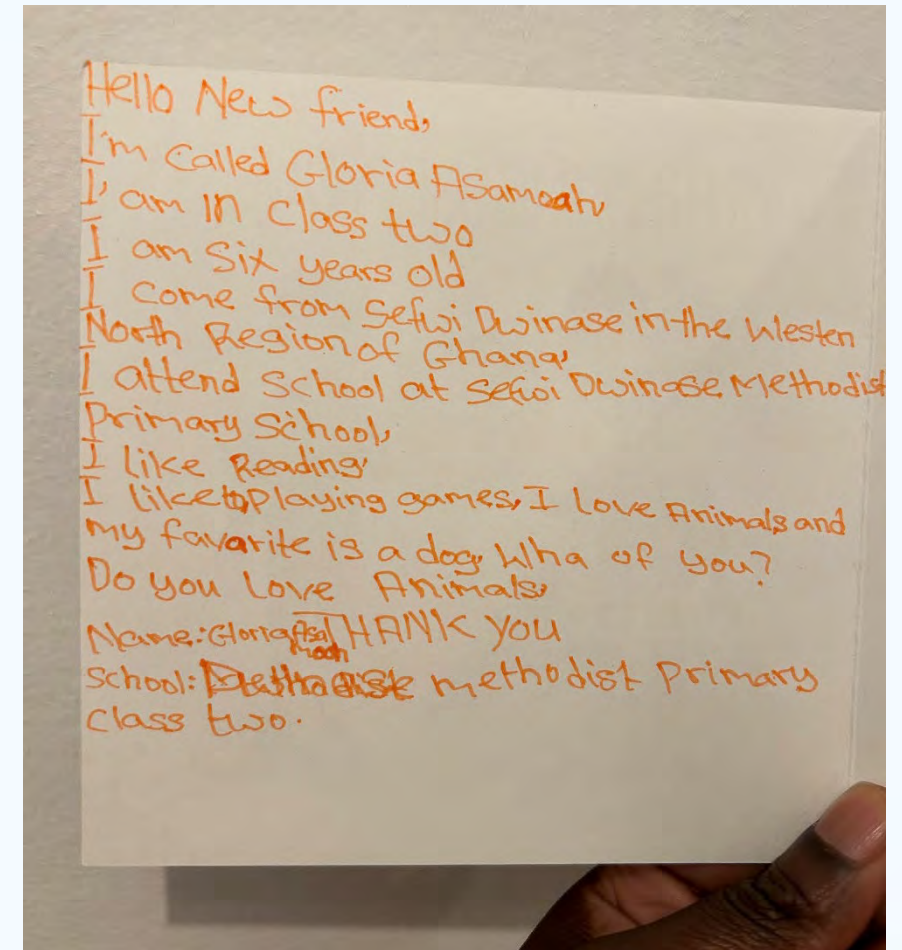 Hello New friend,
I'm called Gloria Asamoah
I' am in class two
I am Six years old
I come from Sefwi Dwinase in the Westen
North Region of Ghana,
I attend School at Sefwi Dwinase Methodist
Primary School,
I like Reading,
I like to Playing games, I Love Animals and
my favarite is a dog, Wha of you?
Do you Love Animals,
Name: Gloria Asamoah THANK YOU
School: methodist Primary
Class two.